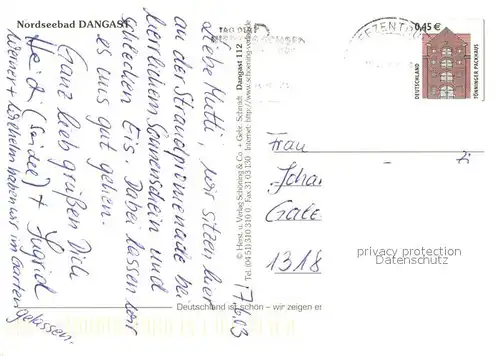 Nordseebad DANGAST
17.6.03
Liebe Mutti, wir sitzen hier
an der Strandpromenade bei
herrlichem Sonnenschein und
schlecken Eis. Dabei lassen wir
es uns gut gehen.
Ganz lieb grüßen Dich
Heidi + Ingrid
Werner + Wilhelm haben wir im Garten
gelassen.
© Herst. u. Verlag Schöning & Co. + Gebr. Schmidt Dangast 112
Tel. (04 51) 3 10 31 0 Fax 31 03 130 Internet http://www.schoening-verlag.de
Deutschland ist schön – wir zeigen es
BRIEFZENT
0,45 €
DEUTSCHLAND
TÖNNINGER PACKHAUS
Frau
1318
privacy protection
Datenschutz